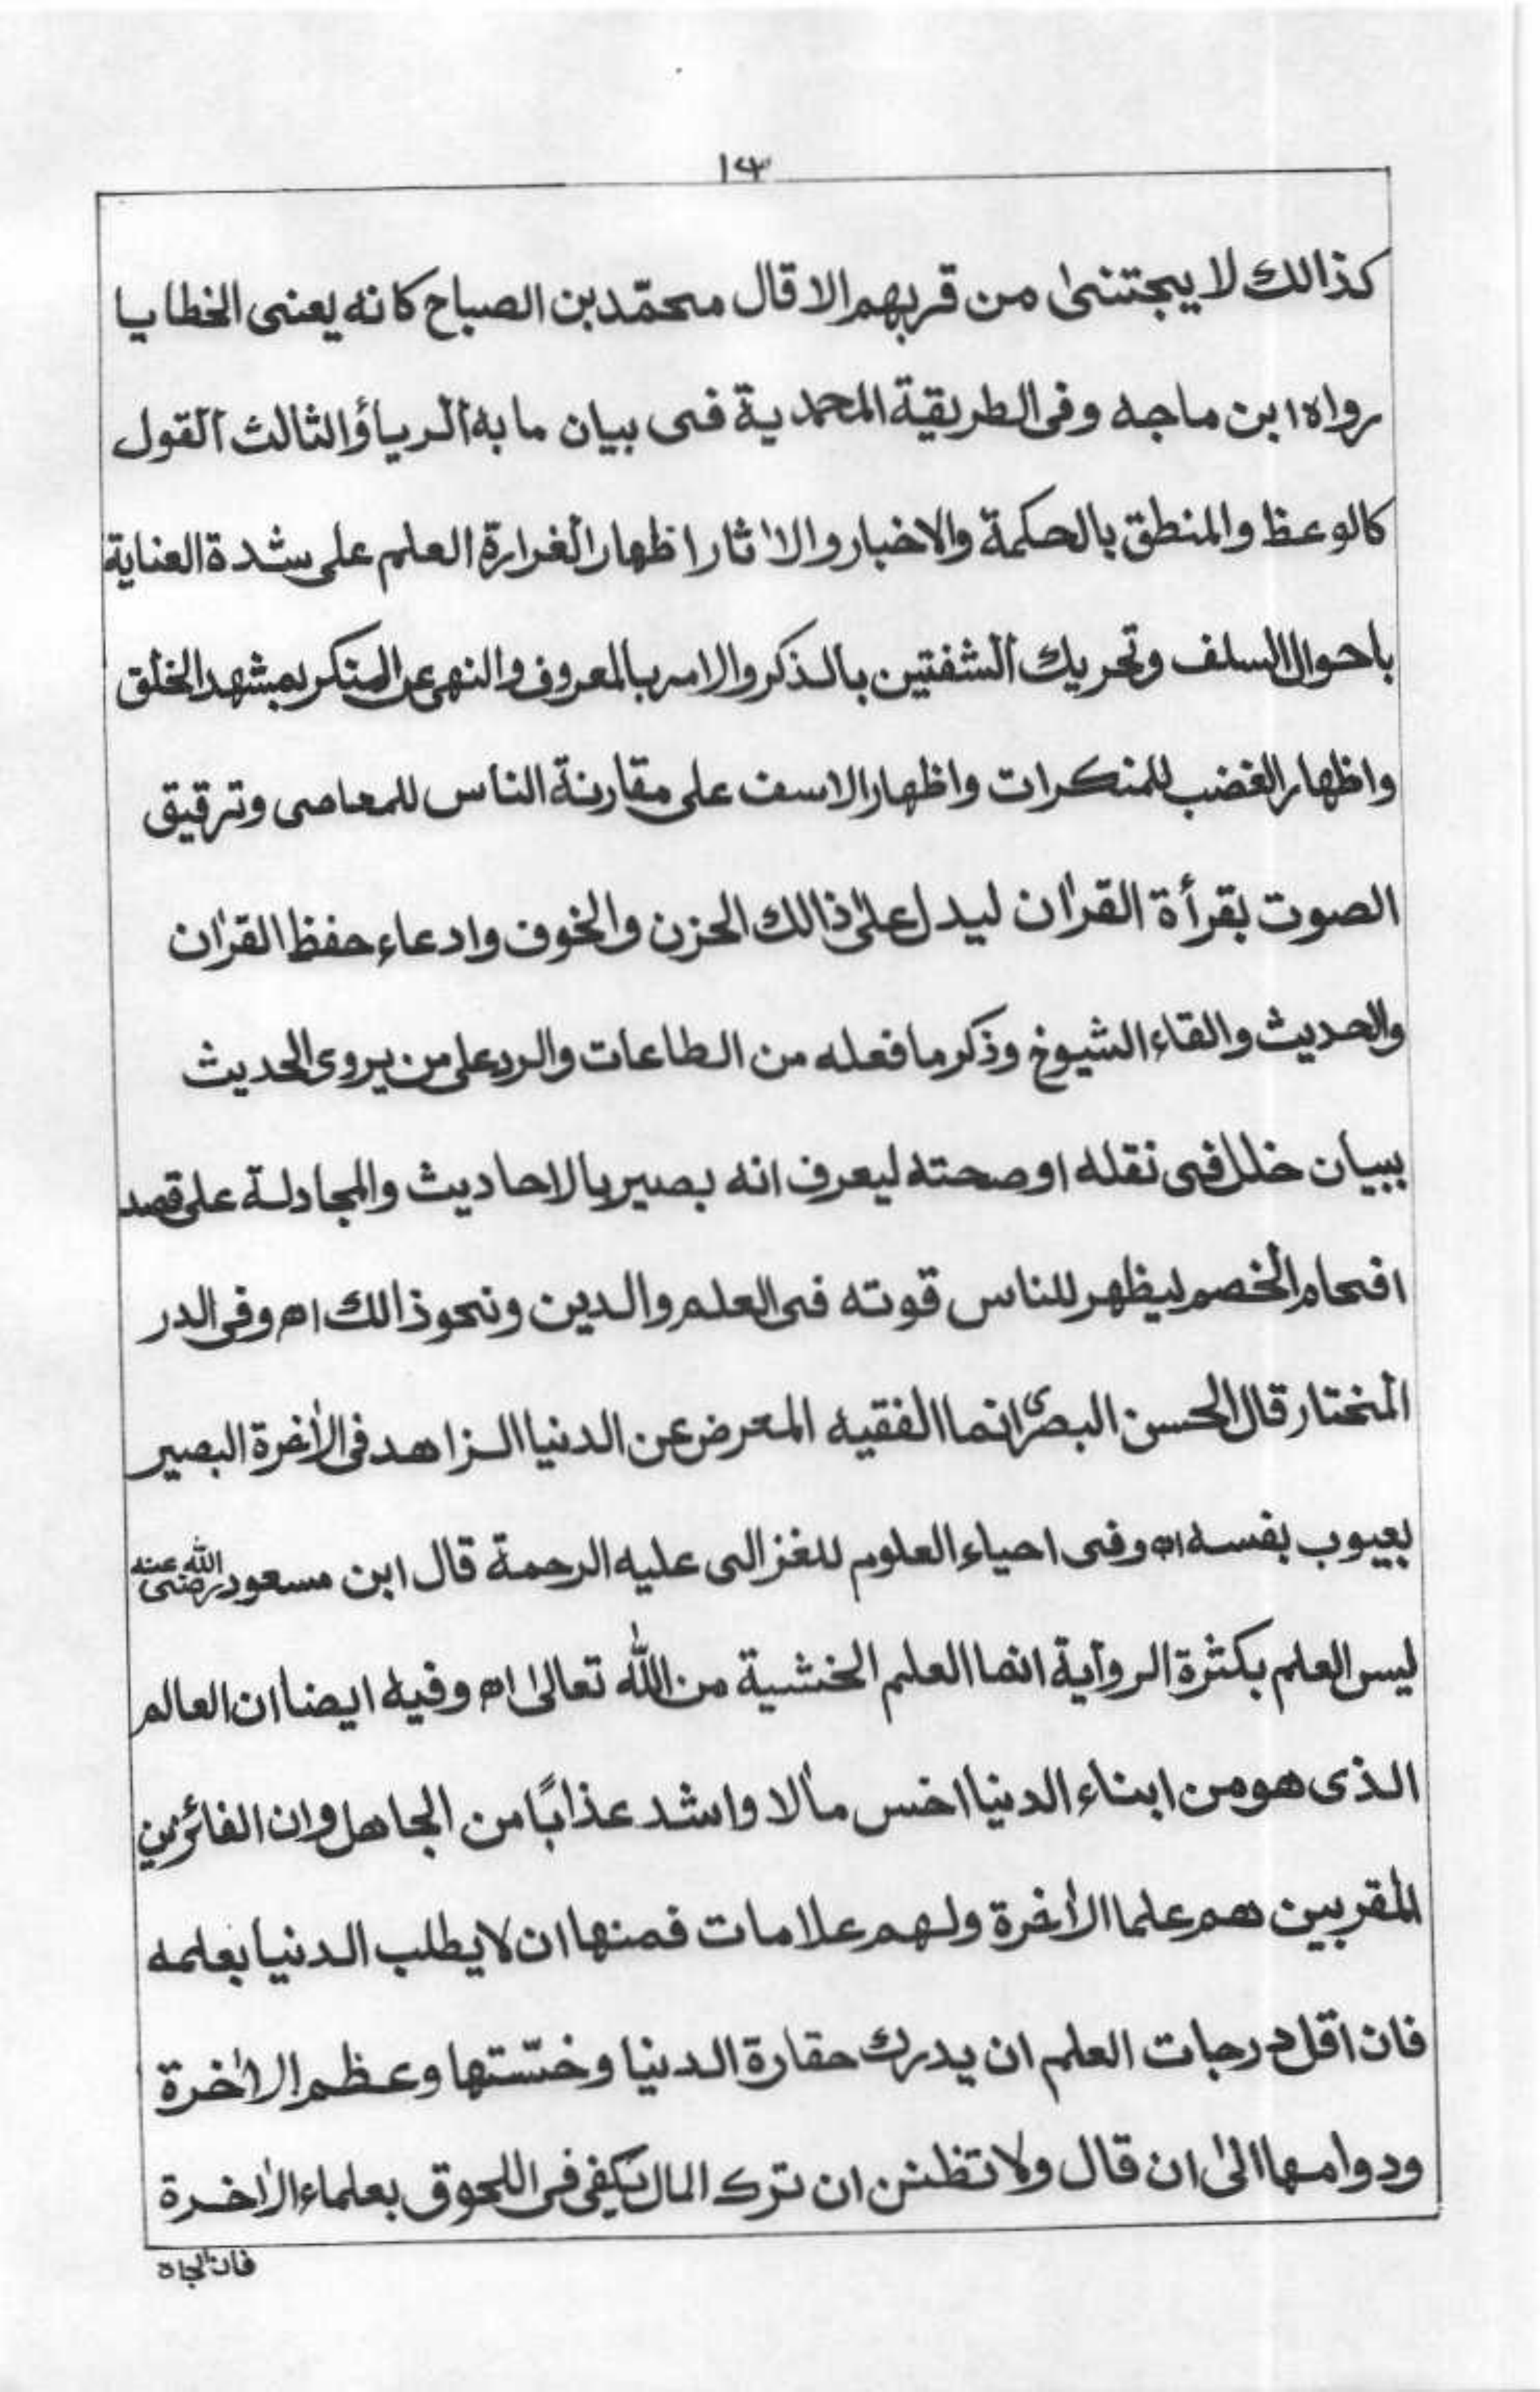 ١٣
كذالك لا يجتنىٰ من قربهم الا قال محمّد بن الصباح كانه يعنى الخطايا
رواه ابن ماجه وفى الطريقية المحمدية فى بيان ما به ٱلرياؤ الثالث ٱلقول
كالوعظ والمنطق بالحكمة والاخبار والاٰثار اظهارا لغرارة العلم على شدة العناية
باحوال السلف وتحريك ٱلشفتين بالذكر والامر بالمعروف والنهى عن المنكر بمشهد الخلق
واظهار الغضب للمنكرات واظهار الاسف على مقارنة الناس للمعاصى وترقيق
الصوت بقرأة القرأن ليدل علىٰ ذالك الحزن والخوف وادعاء حفظ القرأن
والحديث والقاء الشيوخ وذكر ما فعله من الطاعات والرد على من يروى الحديث
ببيان خلل فى نقله او صحته ليعرف انه بصير بالاحاديث والمجادلة على قصد
افحام الخصم ليظهر للناس قوته فى العلم والدين ونحو ذالك اھ وفى الدر
المختار قال الحسن البصرى انما الفقيه المعرض عن الدنيا الزاهد فى الأخرة البصير
بعيوب نفسه اھ وفى احياء العلوم للغزالى عليه الرحمة قال ابن مسعود رضى الله عنه
ليس العلم بكثرة الرواية انما العلم الخشية من الله تعالىٰ اھ وفيه ايضا ان العالم
الذى هو من ابناء الدنيا اخس مألا واشد عذابًا من الجاهل وان الفائزين
المقربين هم علما الأخرة ولهم علامات فمنها ان لا يطلب الدنيا بعلمه
فان اقل درجات العلم ان يدرك حقارة الدنيا وخسّتها وعظم الاٰخرة
ودوامها الىٰ ان قال ولا تظنن ان ترك المال يكفى فى اللحوق بعلماء الاٰخرة
فان الجاه